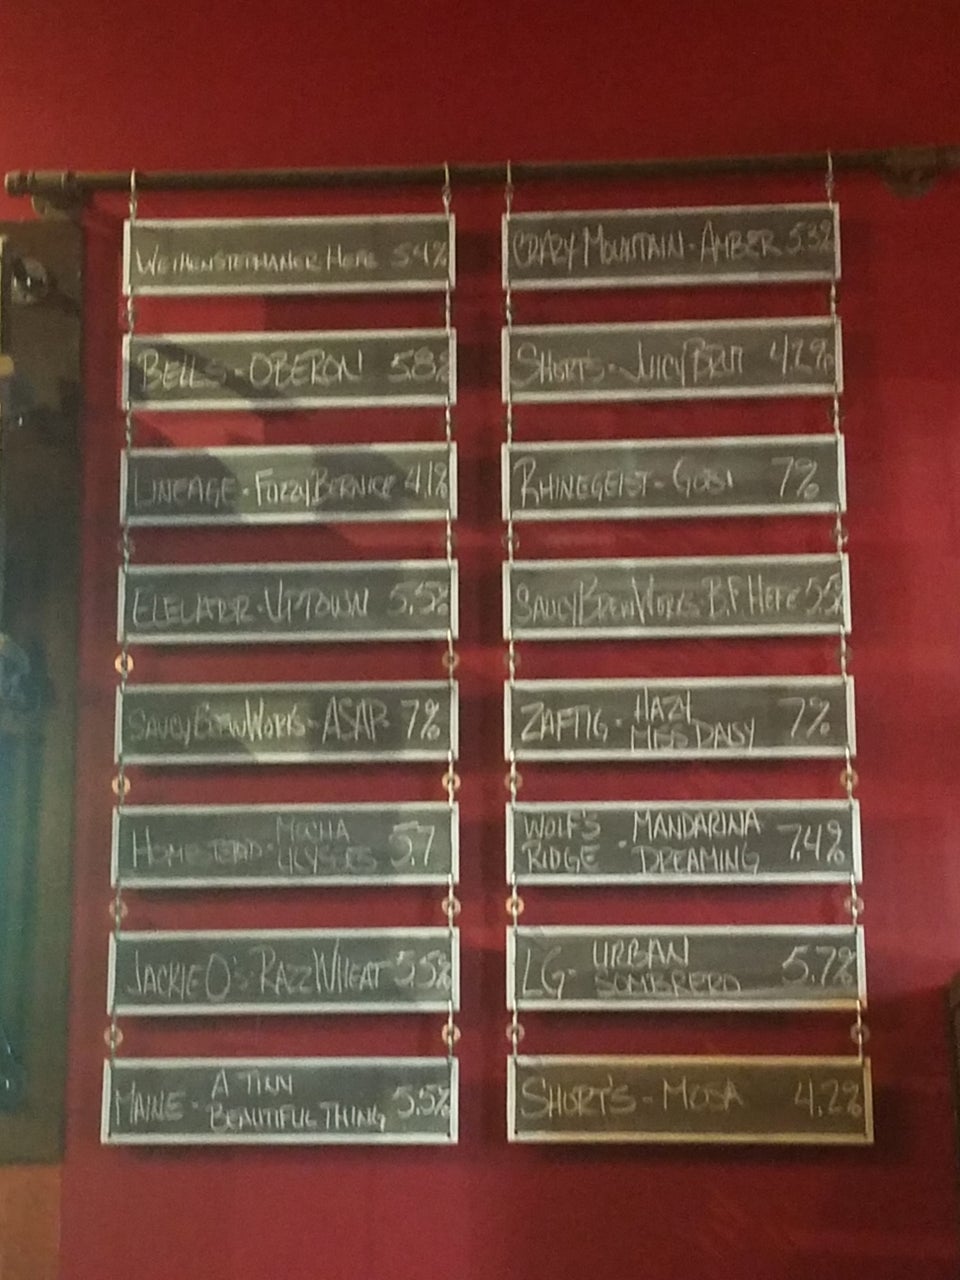 WEIHENSTEPHANER HEFE 5.4%
BELLS - OBERON 5.8%
LINEAGE - FUZZY BERNICE 4.1%
ELEVATOR - UPTOWN 5.5%
SAUCYBREWWORKS - ASAP 7%
HOMESTEAD - MOCHA
ULYSSES 5.7
JACKIE O'S RAZZ WHEAT 5.5%
MAINE - A TINY
BEAUTIFUL THING 5.5%
CRAZY MOUNTAIN - AMBER 5.3%
SHORT'S - JUICY BRUT 4.2%
RHINEGEIST - 7%
SAUCYBREWWORKS - B.F HEFE 5.5
ZAFTIG - HAZY
MISS DAISY 7%
WOLF'S RIDGE - MANDARINA
DREAMING 7.4%
LG - URBAN
SOMBRERO 5.7%
SHORT'S - MOSA 4.2%